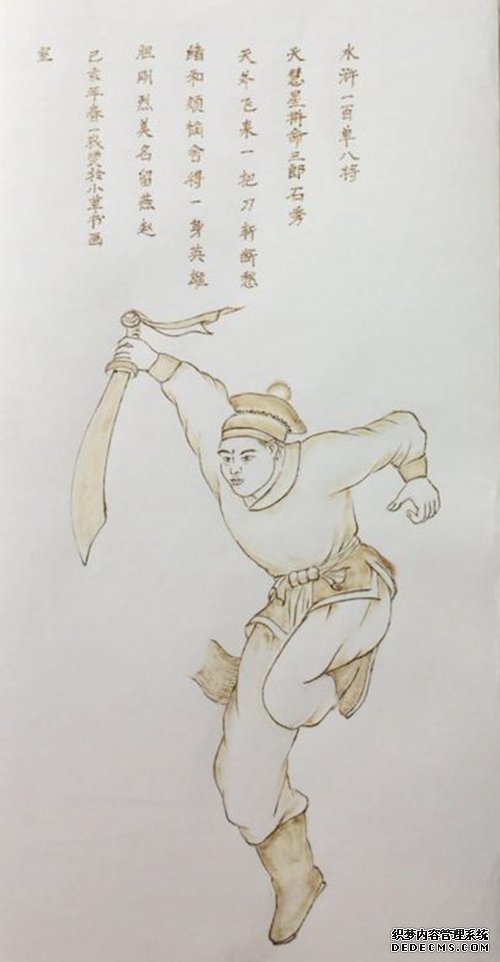 水浒一百单八将
天慧星拼命三郎石秀
天外飞来一把刀斩断愁
绪和烦恼舍得一身英雄
胆刚烈美名留燕赵
己亥年春一敏烫捨小草书画
室
织梦内容管理系统
DEDECMS.COM